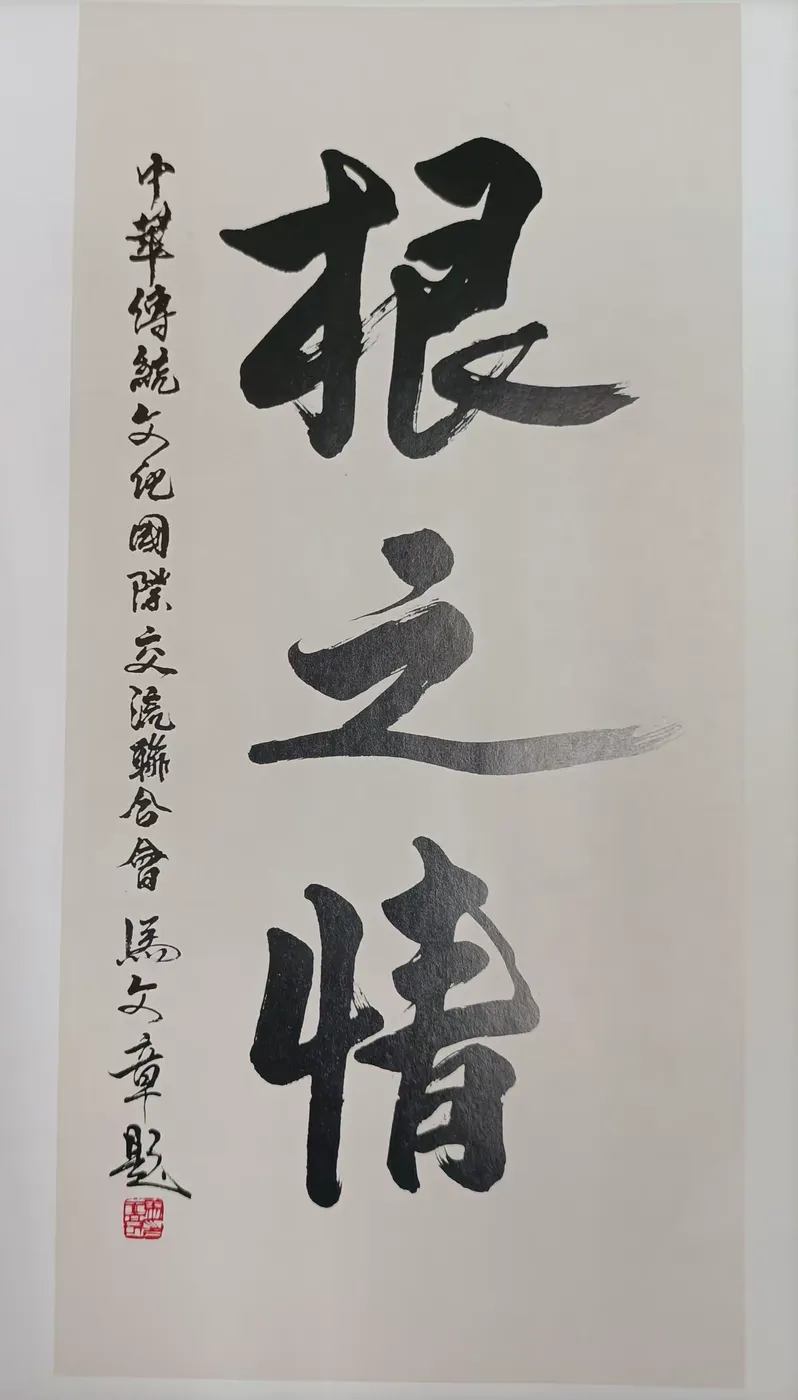 根之情
中華傳統文化國際交流聯合會 馮文章題